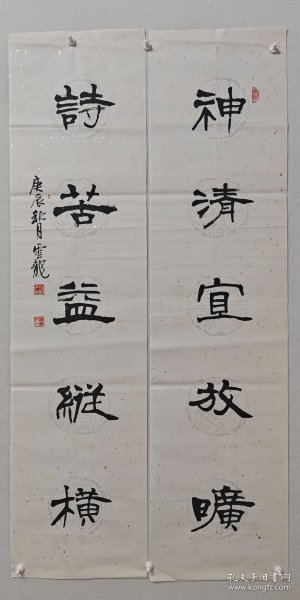 神清宜放曠
詩苦益縱橫
庚辰秋月雲龍
孔夫子旧书网